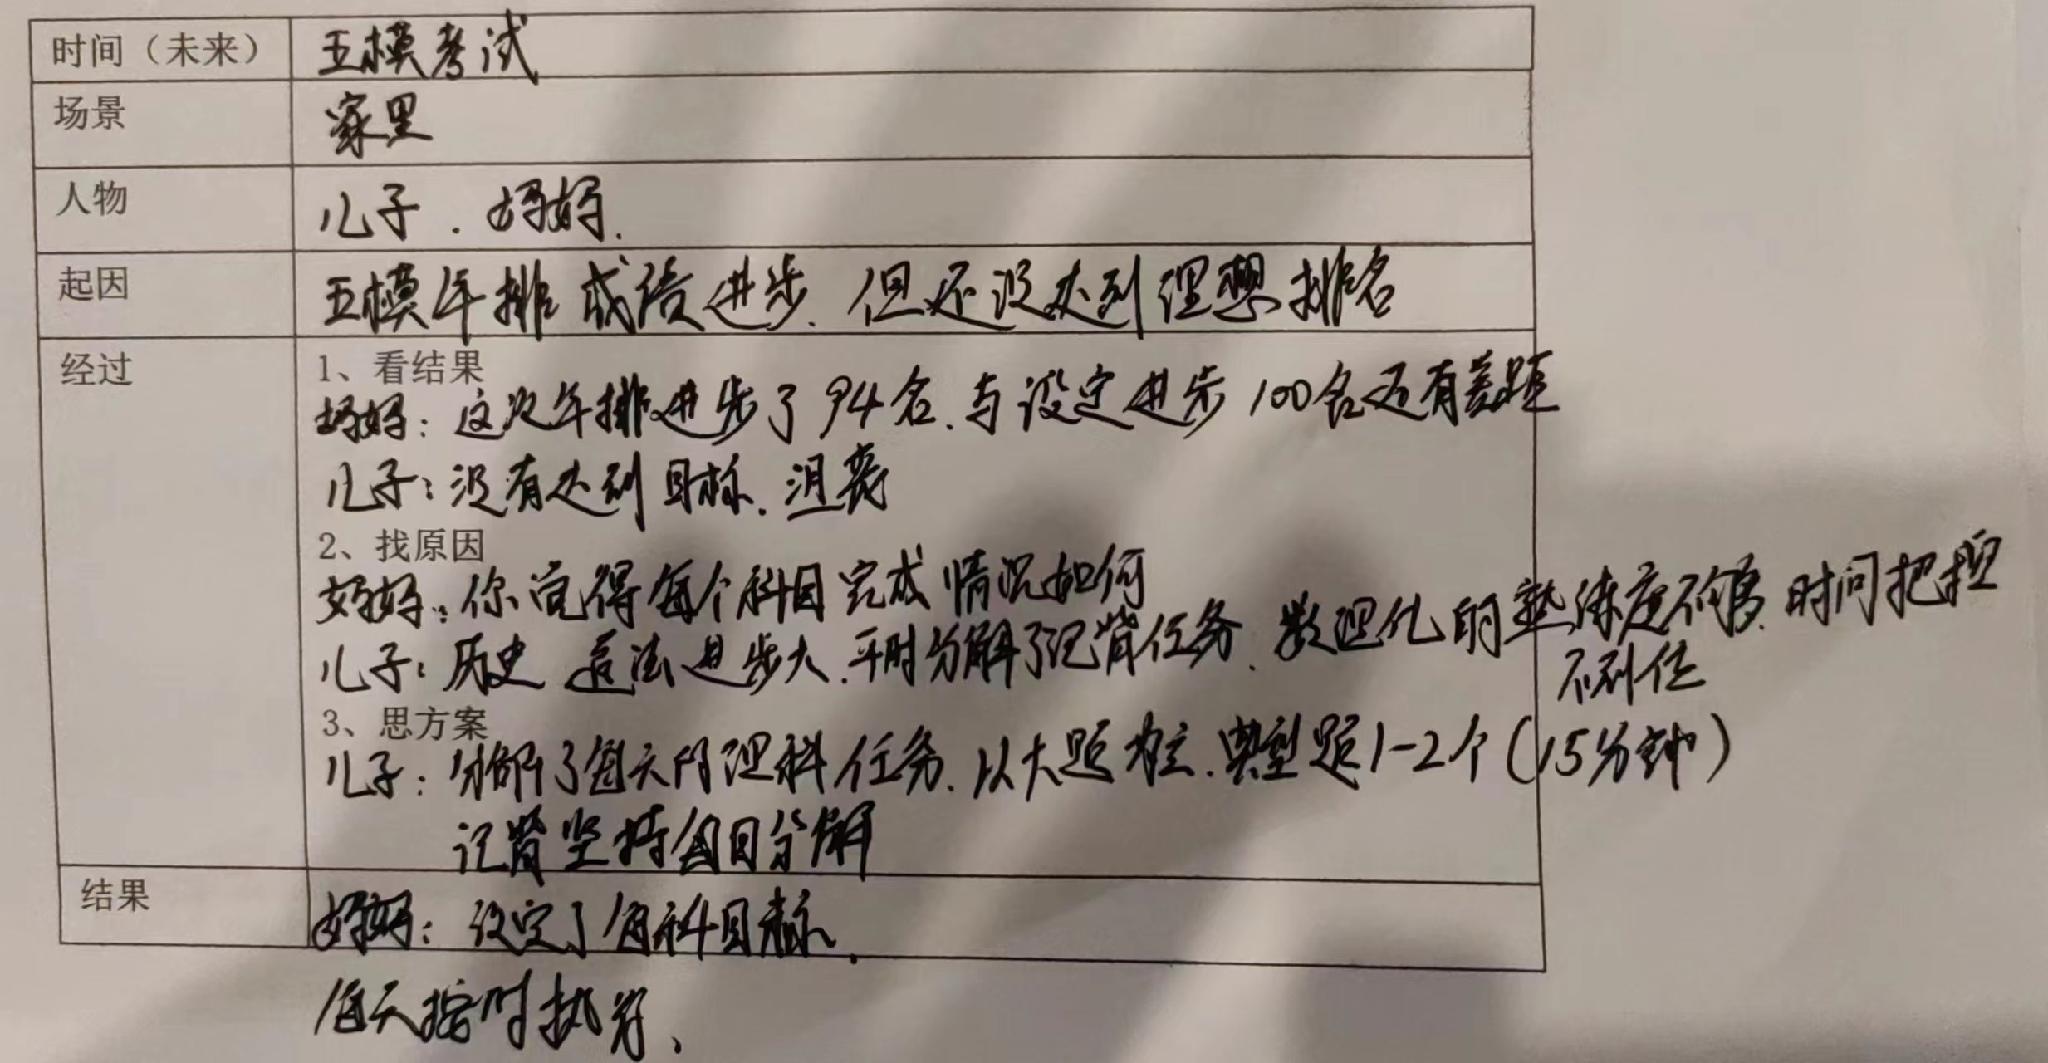 时间（未来） 五模考试
场景 家里
人物 儿子．妈妈．
起因 五模年排成绩进步．但还没达到理想排名
经过 1、看结果
妈妈：这次年排进步了94名．与设定进步100名还有差距
儿子：没有达到目标．沮丧
2、找原因
妈妈：你觉得每个科目完成情况如何
儿子：历史 道法进步大．平时分解了记背任务．数理化的熟练度不够．时间把控
不到位
3、思方案
儿子：分解了每天的理科任务．以大题为主．典型题1-2个（15分钟）
记背坚持每日分解
结果 妈妈：设定了每科目标．
每天按时执行、